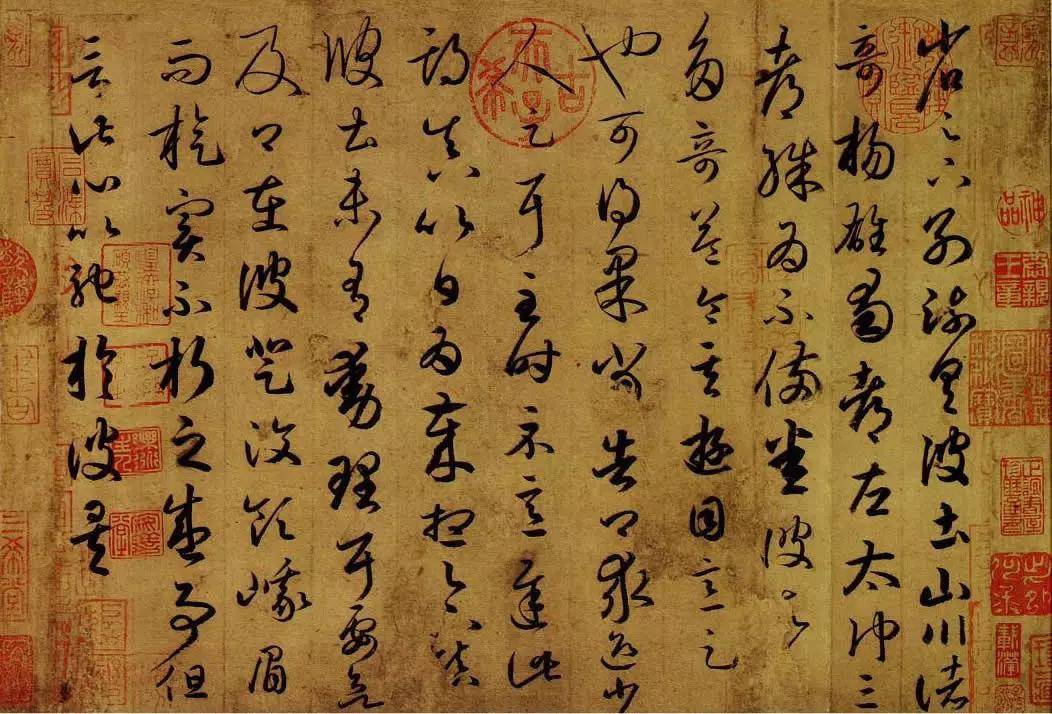 省足下別疏具彼土山川諸
奇楊雄蜀都左太沖三
都殊為不備悉彼故為
多奇益令其遊目意足
也可得果當告卿求迎少
人足耳至時示意遲此
期真以日為歲想足下鎮
彼土未有動理耳要欲
及卿在彼登汶領峨眉
而旋實不朽之盛事但
言此心以馳於彼矣
古希天子
神品
三希堂